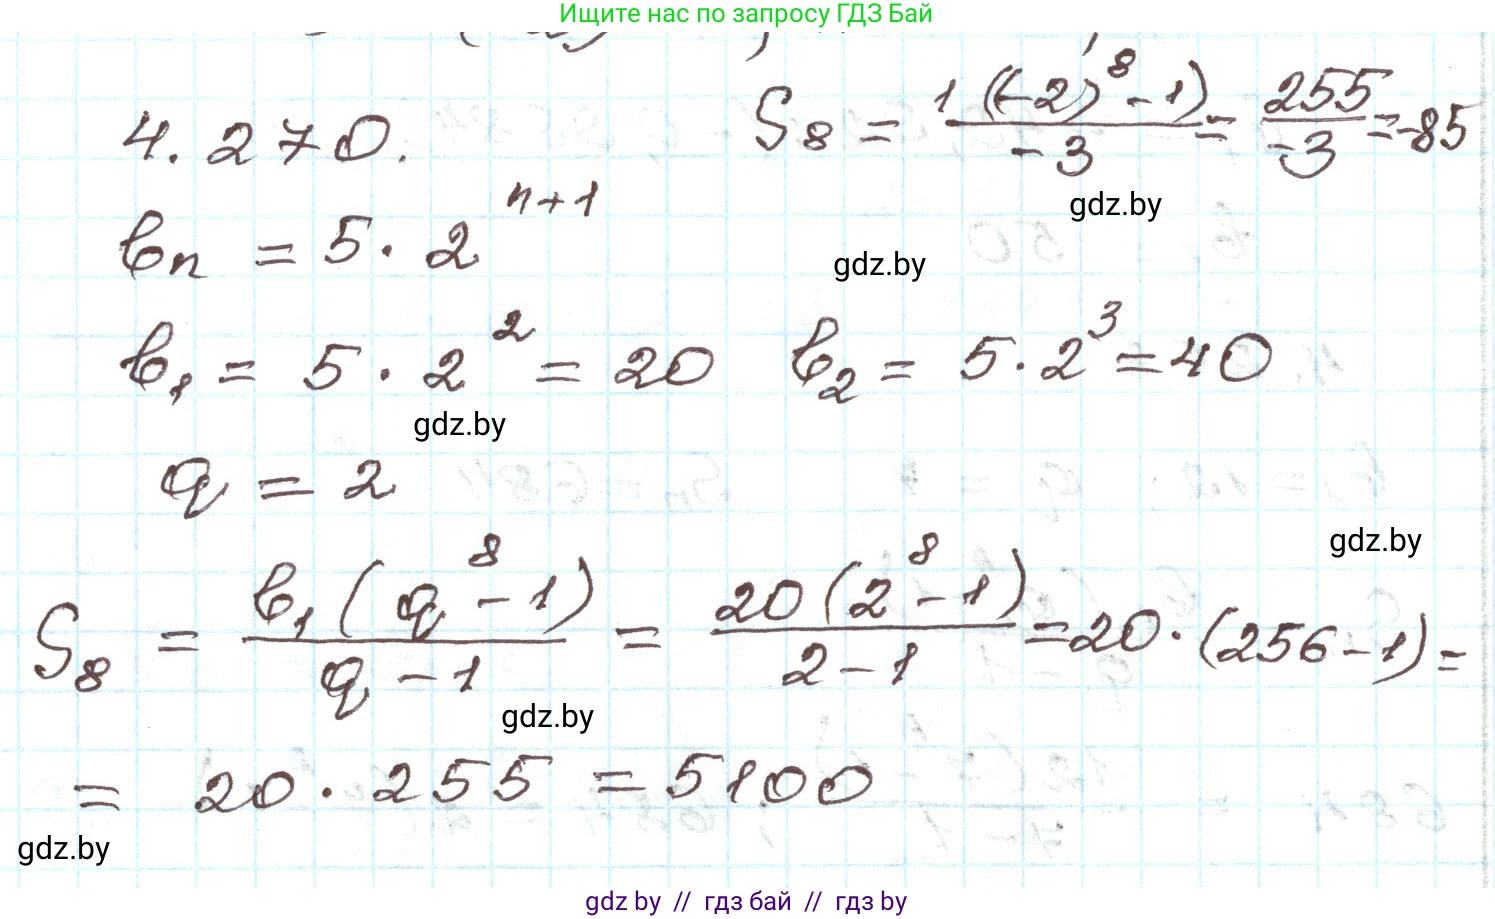 Ищите нас по запросу ГДЗ Бай
S₈ = 1((-2)⁸ - 1) / -3 = 255 / -3 = -85
4.270.
gdz.by
bₙ = 5 · 2ⁿ⁺¹
gdz.by
b₁ = 5 · 2² = 20 b₂ = 5 · 2³ = 40
gdz.by
q = 2
gdz.by
S₈ = b₁(q⁸ - 1) / q - 1 = 20(2⁸ - 1) / 2 - 1 = 20 · (256 - 1) =
gdz.by
= 20 · 255 = 5100
gdz.by
gdz by // гдз бай // гдз by